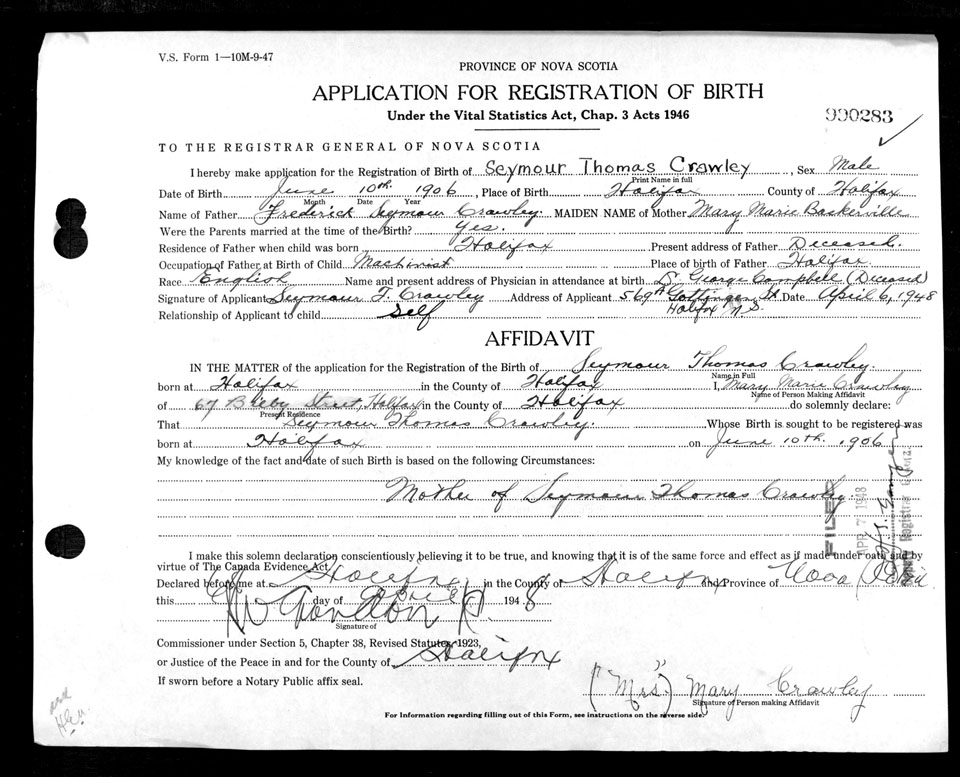 V.S. Form 1—10M-9-47
PROVINCE OF NOVA SCOTIA
APPLICATION FOR REGISTRATION OF BIRTH
Under the Vital Statistics Act, Chap. 3 Acts 1946
990283
TO THE REGISTRAR GENERAL OF NOVA SCOTIA
I hereby make application for the Registration of Birth of Seymour Thomas Crowley, Sex Male
Print Name in full
Date of Birth June 10th. 1906, Place of Birth Halifax County of Halifax
Month Date Year
Name of Father Frederick Seymour Crawley. MAIDEN NAME of Mother Mary Marie Baskerville
Were the Parents married at the time of the Birth? Yes.
Residence of Father when child was born Halifax Present address of Father Deceased.
Occupation of Father at Birth of Child Machinist Place of birth of Father Halifax.
Race of English Name and present address of Physician in attendance at birth George Campbell (Deceased)
Signature of Applicant Seymour T. Crawley Address of Applicant 569A Gottingen St. Date April 6, 1948
Halifax N.S.
Relationship of Applicant to child Self
AFFIDAVIT
IN THE MATTER of the application for the Registration of the Birth of Seymour Thomas Crawley.
Name in Full
born at Halifax in the County of Halifax I, Mary Marie Crawley
Name of Person Making Affidavit
of 67 Bilby Street, Halifax in the County of Halifax do solemnly declare:
Present Residence
That Seymour Thomas Crawley. Whose Birth is sought to be registered was
born at Halifax on June 10th. 1906
My knowledge of the fact and date of such Birth is based on the following Circumstances:
Mother of Seymour Thomas Crawley.
FILED
APR 7 1948
I make this solemn declaration conscientiously believing it to be true, and knowing that it is of the same force and effect as if made under oath and by
virtue of The Canada Evidence Act.
Declared before me at Halifax in the County of Halifax and Province of Nova Scotia
this day of April 1948
Signature of
Commissioner under Section 5, Chapter 38, Revised Statutes, 1923,
or Justice of the Peace in and for the County of Halifax
If sworn before a Notary Public affix seal.
("Mrs.") Mary Crawley
Signature of Person making Affidavit
For Information regarding filling out of this Form, see instructions on the reverse side.